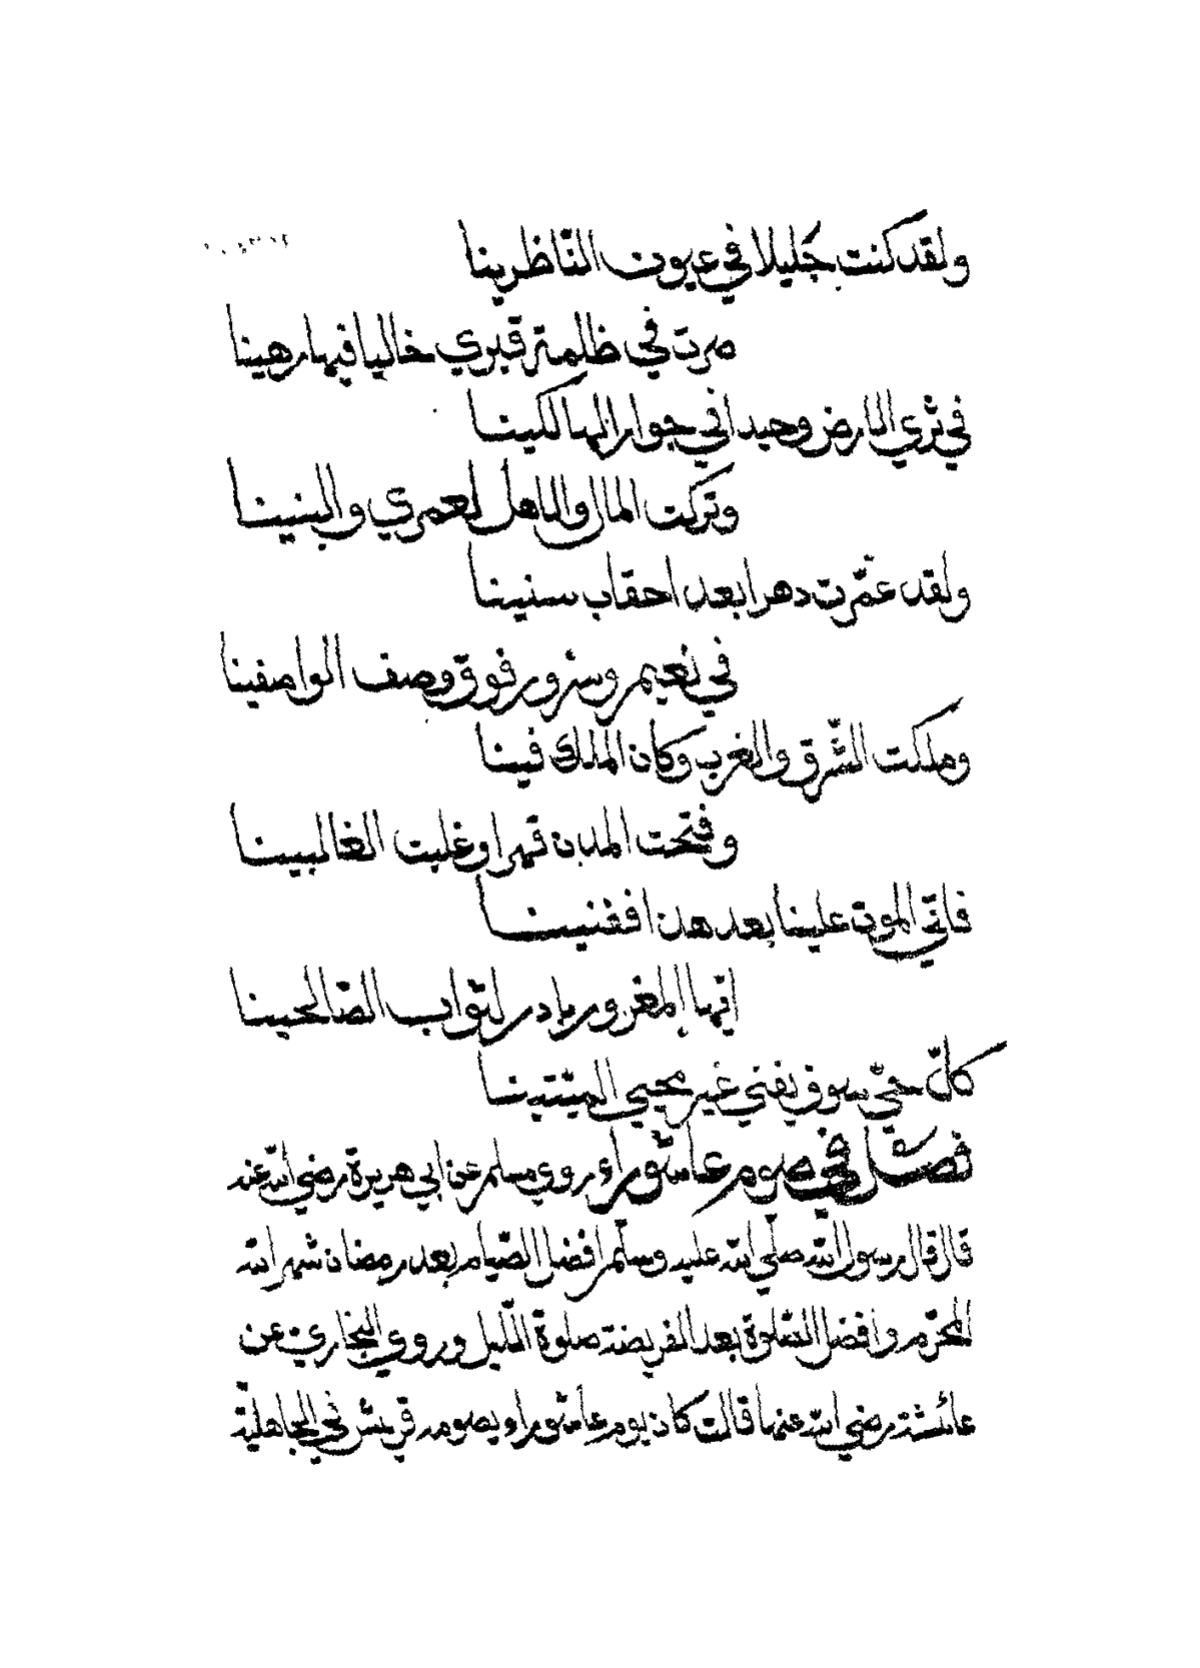 ولقد كنت جليلا في عيون النّاظرينا
صرت في ظلمة قبري خاليا فيها رهينا
في ثري الارض وحيدا في جوار الهالكينا
وتركت المال والاهل لعمري والبنينا
ولقد عمّرت دهرا بعد احقاب سنينا
في نعيم وسرور فوق وصف الواصفينا
وملكت الشّرق والغرب وكان الملك فينا
وفتحت المدن قهرا وغلبت الغالبينا
فاتي الموت علينا بعد هذا ففنينا
ايّها المغرور بادر لثواب الصّالحينا
كلّ حيّ سوف يفني غير محيي الميّتينا
فصل في صوم عاشوراء روي مسلم عن ابي هريرة رضي الله عنه
قال قال رسول الله صلّي الله عليه وسلّم افضل الصّيام بعد رمضان شهر الله
المحرّم وافضل الصّلوة بعد الفريضة صلوة اللّيل وروي البخاري عن
عائشة رضي الله عنها قالت كان يوم عاشوراء يصومه قريش في الجاهليّة